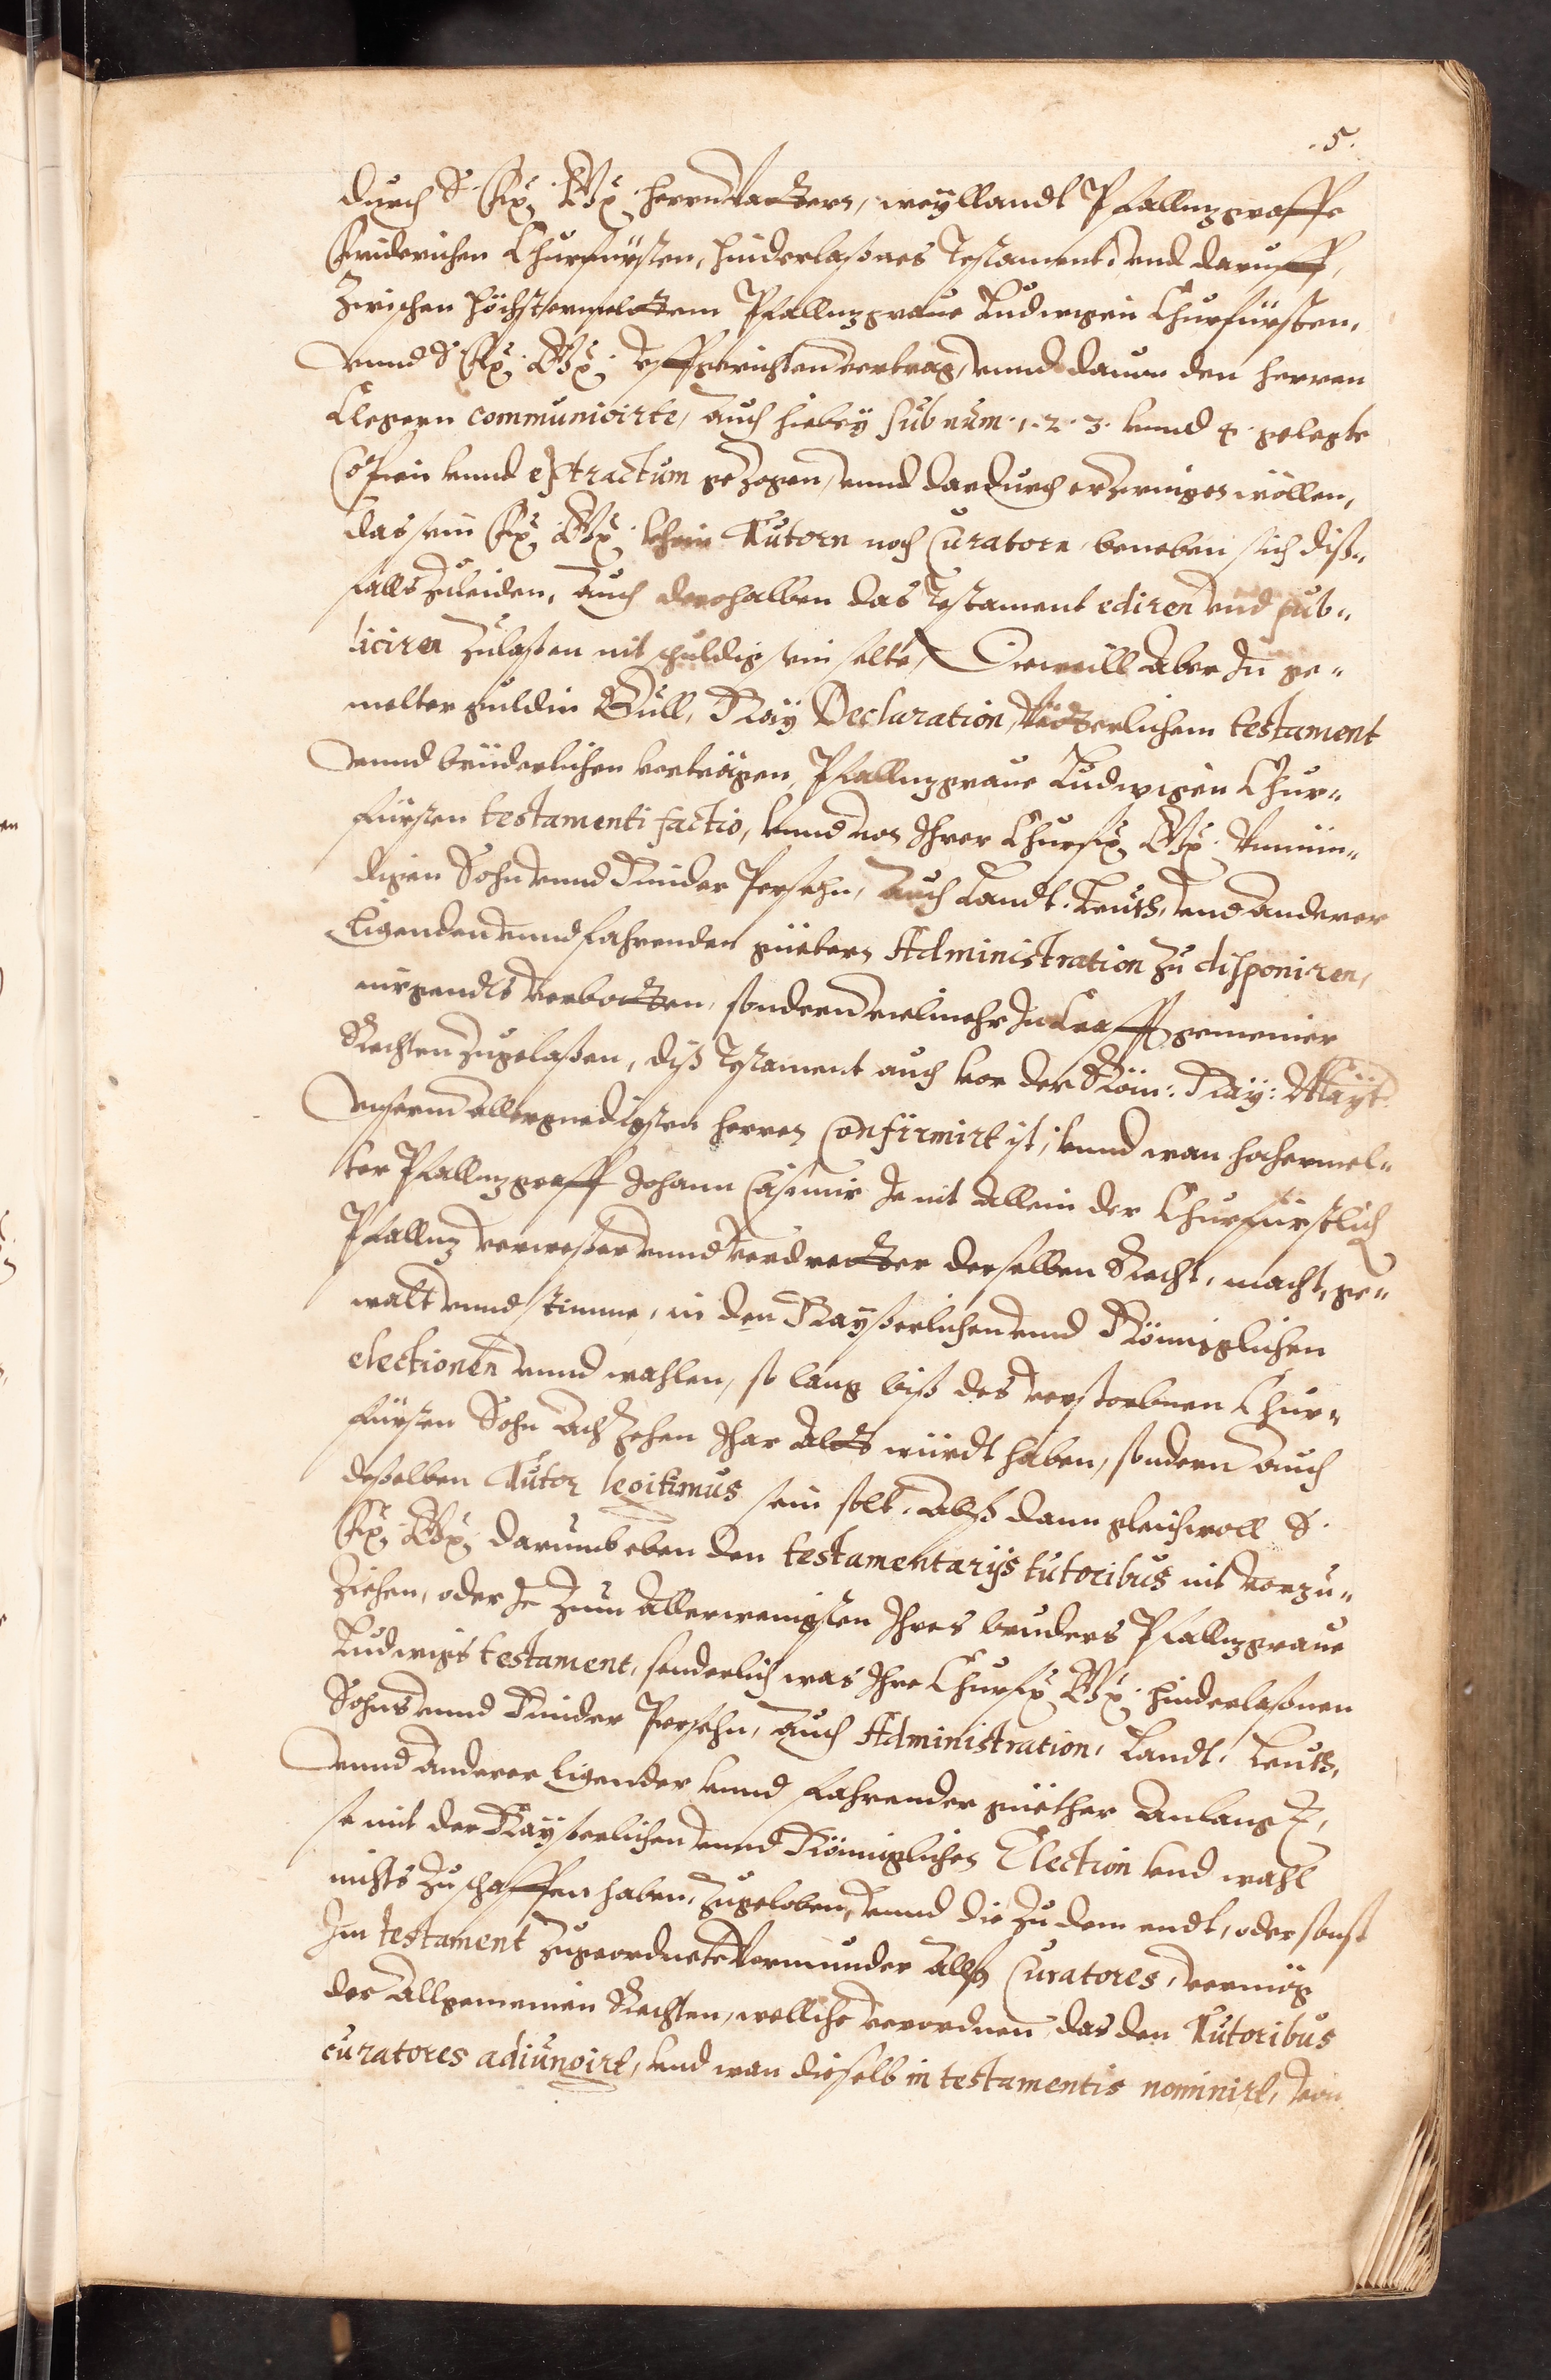 .5.
durch S. Fr: Gn: herrn Vattern, weyllandt Pfalltzgraffe
Friderichen Churfürsten, hinderlaßnes Testament, vnd daruff,
Zwischen höchstermeltem Pfalltzgraue Ludwigen Churfürsten,
vnnd S. Fr: Gn: vffgerichten vertrag, vnnd dauon den herren
Clegern communicirte, auch hiebey sub num. 1. 2. 3. vnnd 4. gelegte
Copien vnnd extractum gezogen, vnnd dardurch erzwingen wöllen,
das sein Fr: Gn: khein Tutorn noch Curatorn, beneben sich diß„
falls zuleiden, auch derohalben das Testament ediren vnd pub„
liciren zulaßen nit schuldig sein solte, Dieweill aber In ge„
melter guldin Bull, Kay. Declaration, Vätterlichem testament
vnnd brüderlichen verträgen, Pfalltzgraue Ludwigen Chur„
fürsten testamenti factio, vnnd von Ihrer Churfr: Gn: Vnmün„
digen Sohn vnnd Kinder Persohn, auch Landt, Leuth, vnd anderer
Ligenden vnnd fahrenden güettern Administration zu disponiren,
nirgendts verbotten, sondern vielmehr In Krafft gemeiner
Rechten zugelaßen, diß Testament auch von der Röm: Kay: Mayt.
vnserm allergnedigsten herren Confirmirt ist, vnnd wan hochermel„
ter Pfalltzgraff Johann Casimir Je nit allein der Churfürstlich
Pfalltz verweßer vnnd vertretter derselben Recht, macht, ge„
walt vnnd stimme, in den Kayßerlichen vnnd Königlichen
electionen vnnd wahlen, so lang biß des verstorbnen Chur„
fürsten Sohn Achzehen Jhar alts würdt haben, sondern auch
deßelben Tutor legitimus sein solt, alß dann gleichwoll S.
Fr: Gn: darumb eben den testamentarijs tutoribus nit vorzu„
ziehen, oder Je zum allerwenigsten Ihres bruders Pfalltzgraue
Ludwigs testament, sonderlich was Ihre Churfr: Gn: hinderlaßnen
Sohns vnnd Kinder Persohn, auch Administration, Landt, Leuth,
vnnd anderer Ligender vnnd fahrender güether anlangt,
so mit der Kayßerlichen vnnd Königlichen Election vnd wahl
nichts zu schaffen haben, zugeloben, vnnd die zu dem endt, oder sonst
Im testament zugeordnete Vormunder alß Curatores, vermög
der allgemeinen Rechten, welliche verordnen, das den Tutoribus
curatores adiungirt, vnd wan dieselb in testamentis nominirt, von